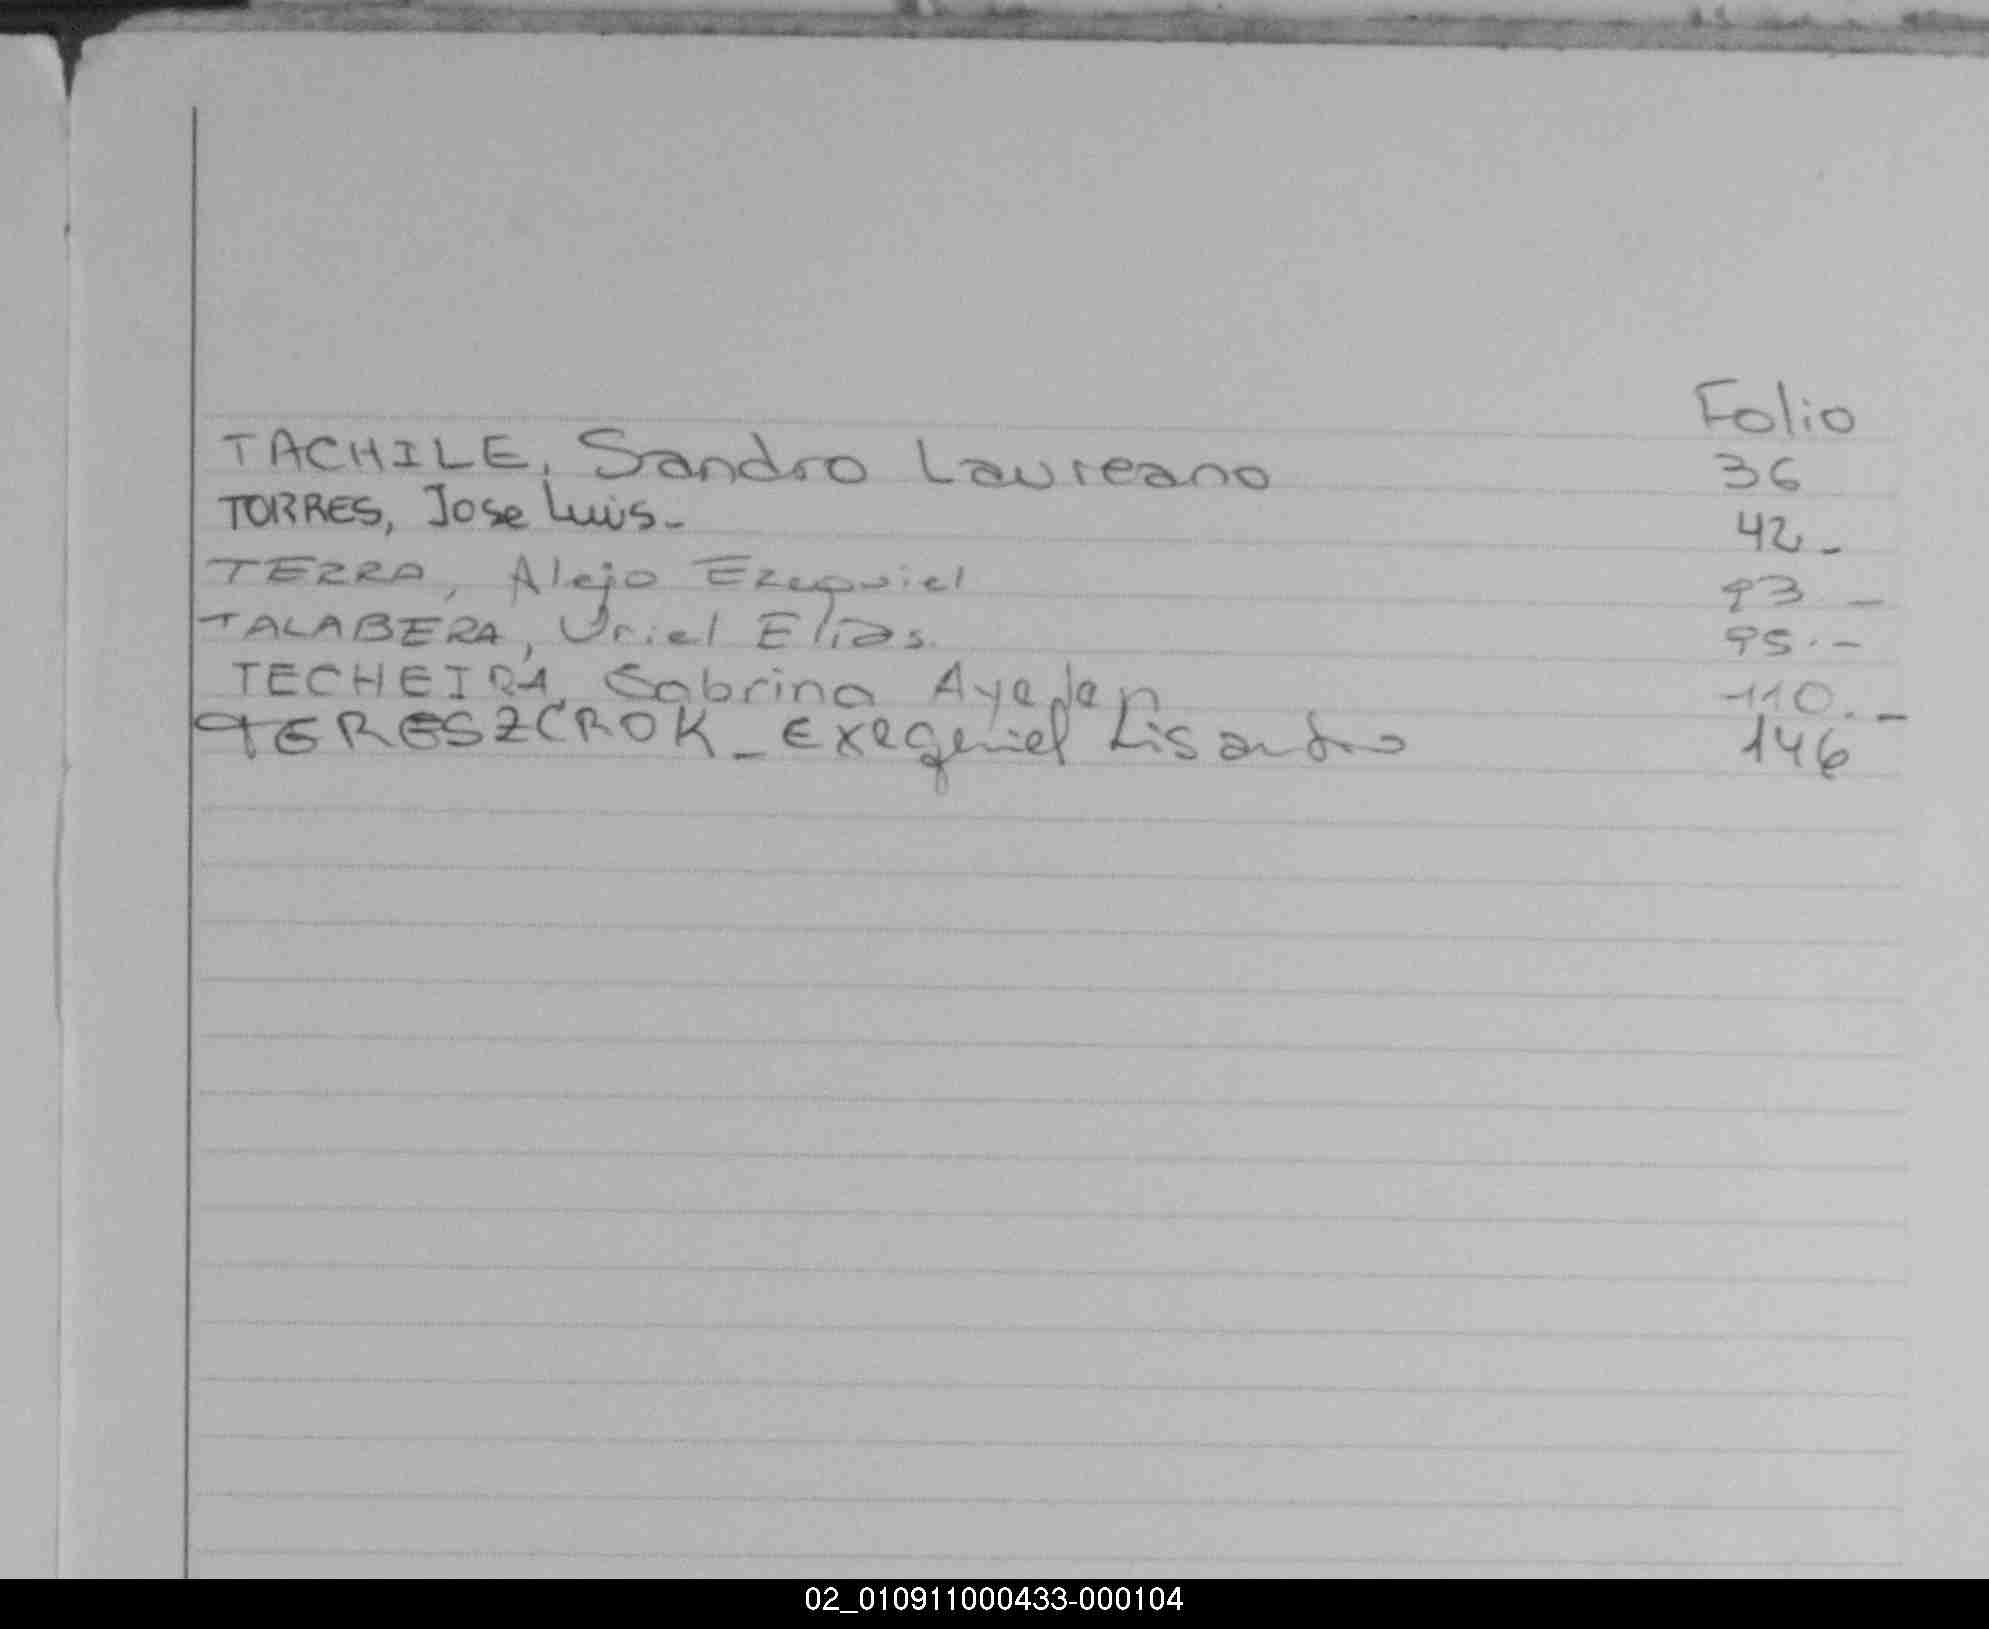 Folio
TACHILE, Sandro Laureano 36
TORRES, Jose Luis.- 42.-
TERRA, Alejo Ezequiel 93 -
TALABERA, Uriel Elias. 95.-
TECHEIRA, Sabrina Ayelen 110.-
TERESZCROK - Exequiel Lisandro 146
02_010911000433-000104